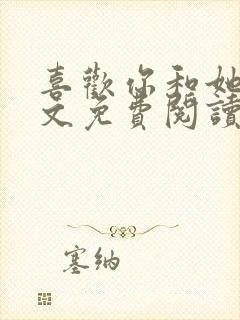 喜歡你和她
文免費閱讀
塞納